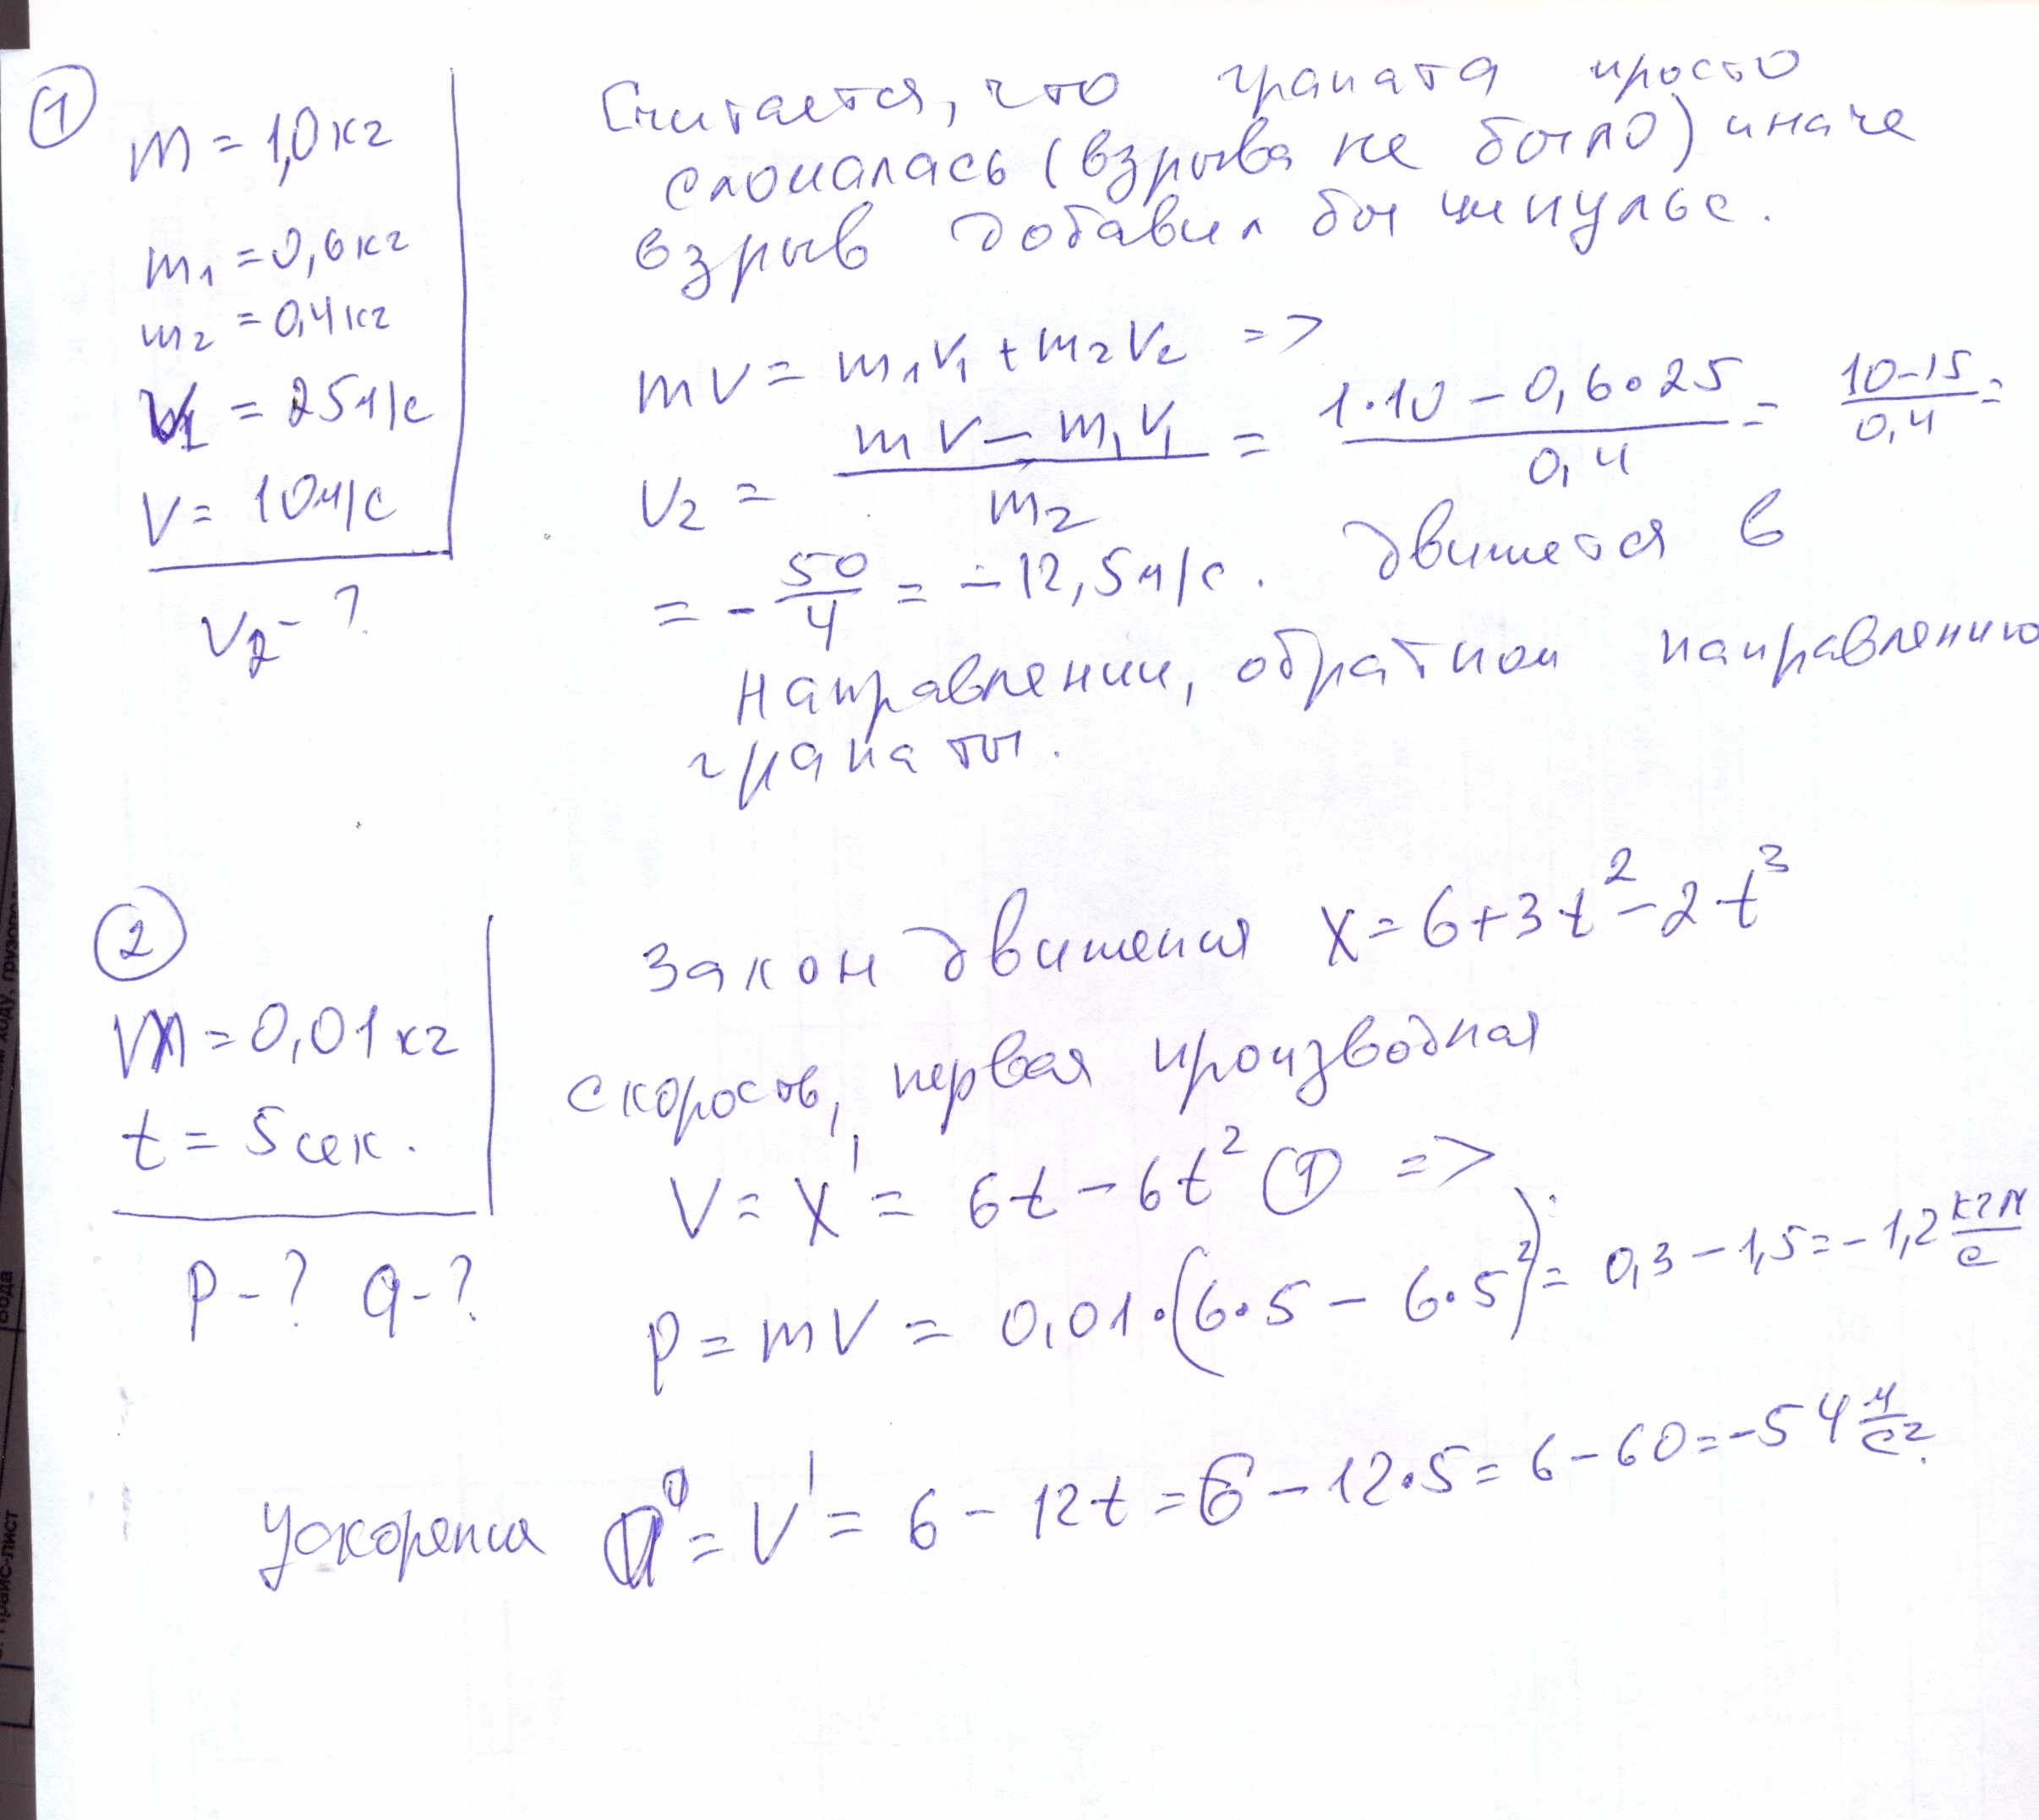 1
m = 1,0 кг
m₁ = 0,6 кг
m₂ = 0,4 кг
V₁ = 25 м/с
V = 10 м/с
V₂ - ?
Считается, что граната просто
сломалась (взрыва не было) иначе
взрыв добавил бы импульс.
mV = m₁V₁ + m₂V₂ =>
V₂ = (mV - m₁V₁)/m₂ = (1·10 - 0,6·25)/0,4 = (10-15)/0,4 =
= - 50/4 = -12,5 м/с. движется в
направлении, обратном направлению
гранаты.
2
m = 0,01 кг
t = 5 сек.
p - ? a - ?
Закон движения x = 6 + 3t² - 2t³
скорость, первая производная
V = x' = 6t - 6t² (1) =>
p = mV = 0,01·(6·5 - 6·5²) = 0,3 - 1,5 = -1,2 кгм/с
Ускорения a = V' = 6 - 12t = 6 - 12·5 = 6 - 60 = -54 м/с².
прайс-лист
вода
ходу, грузопод